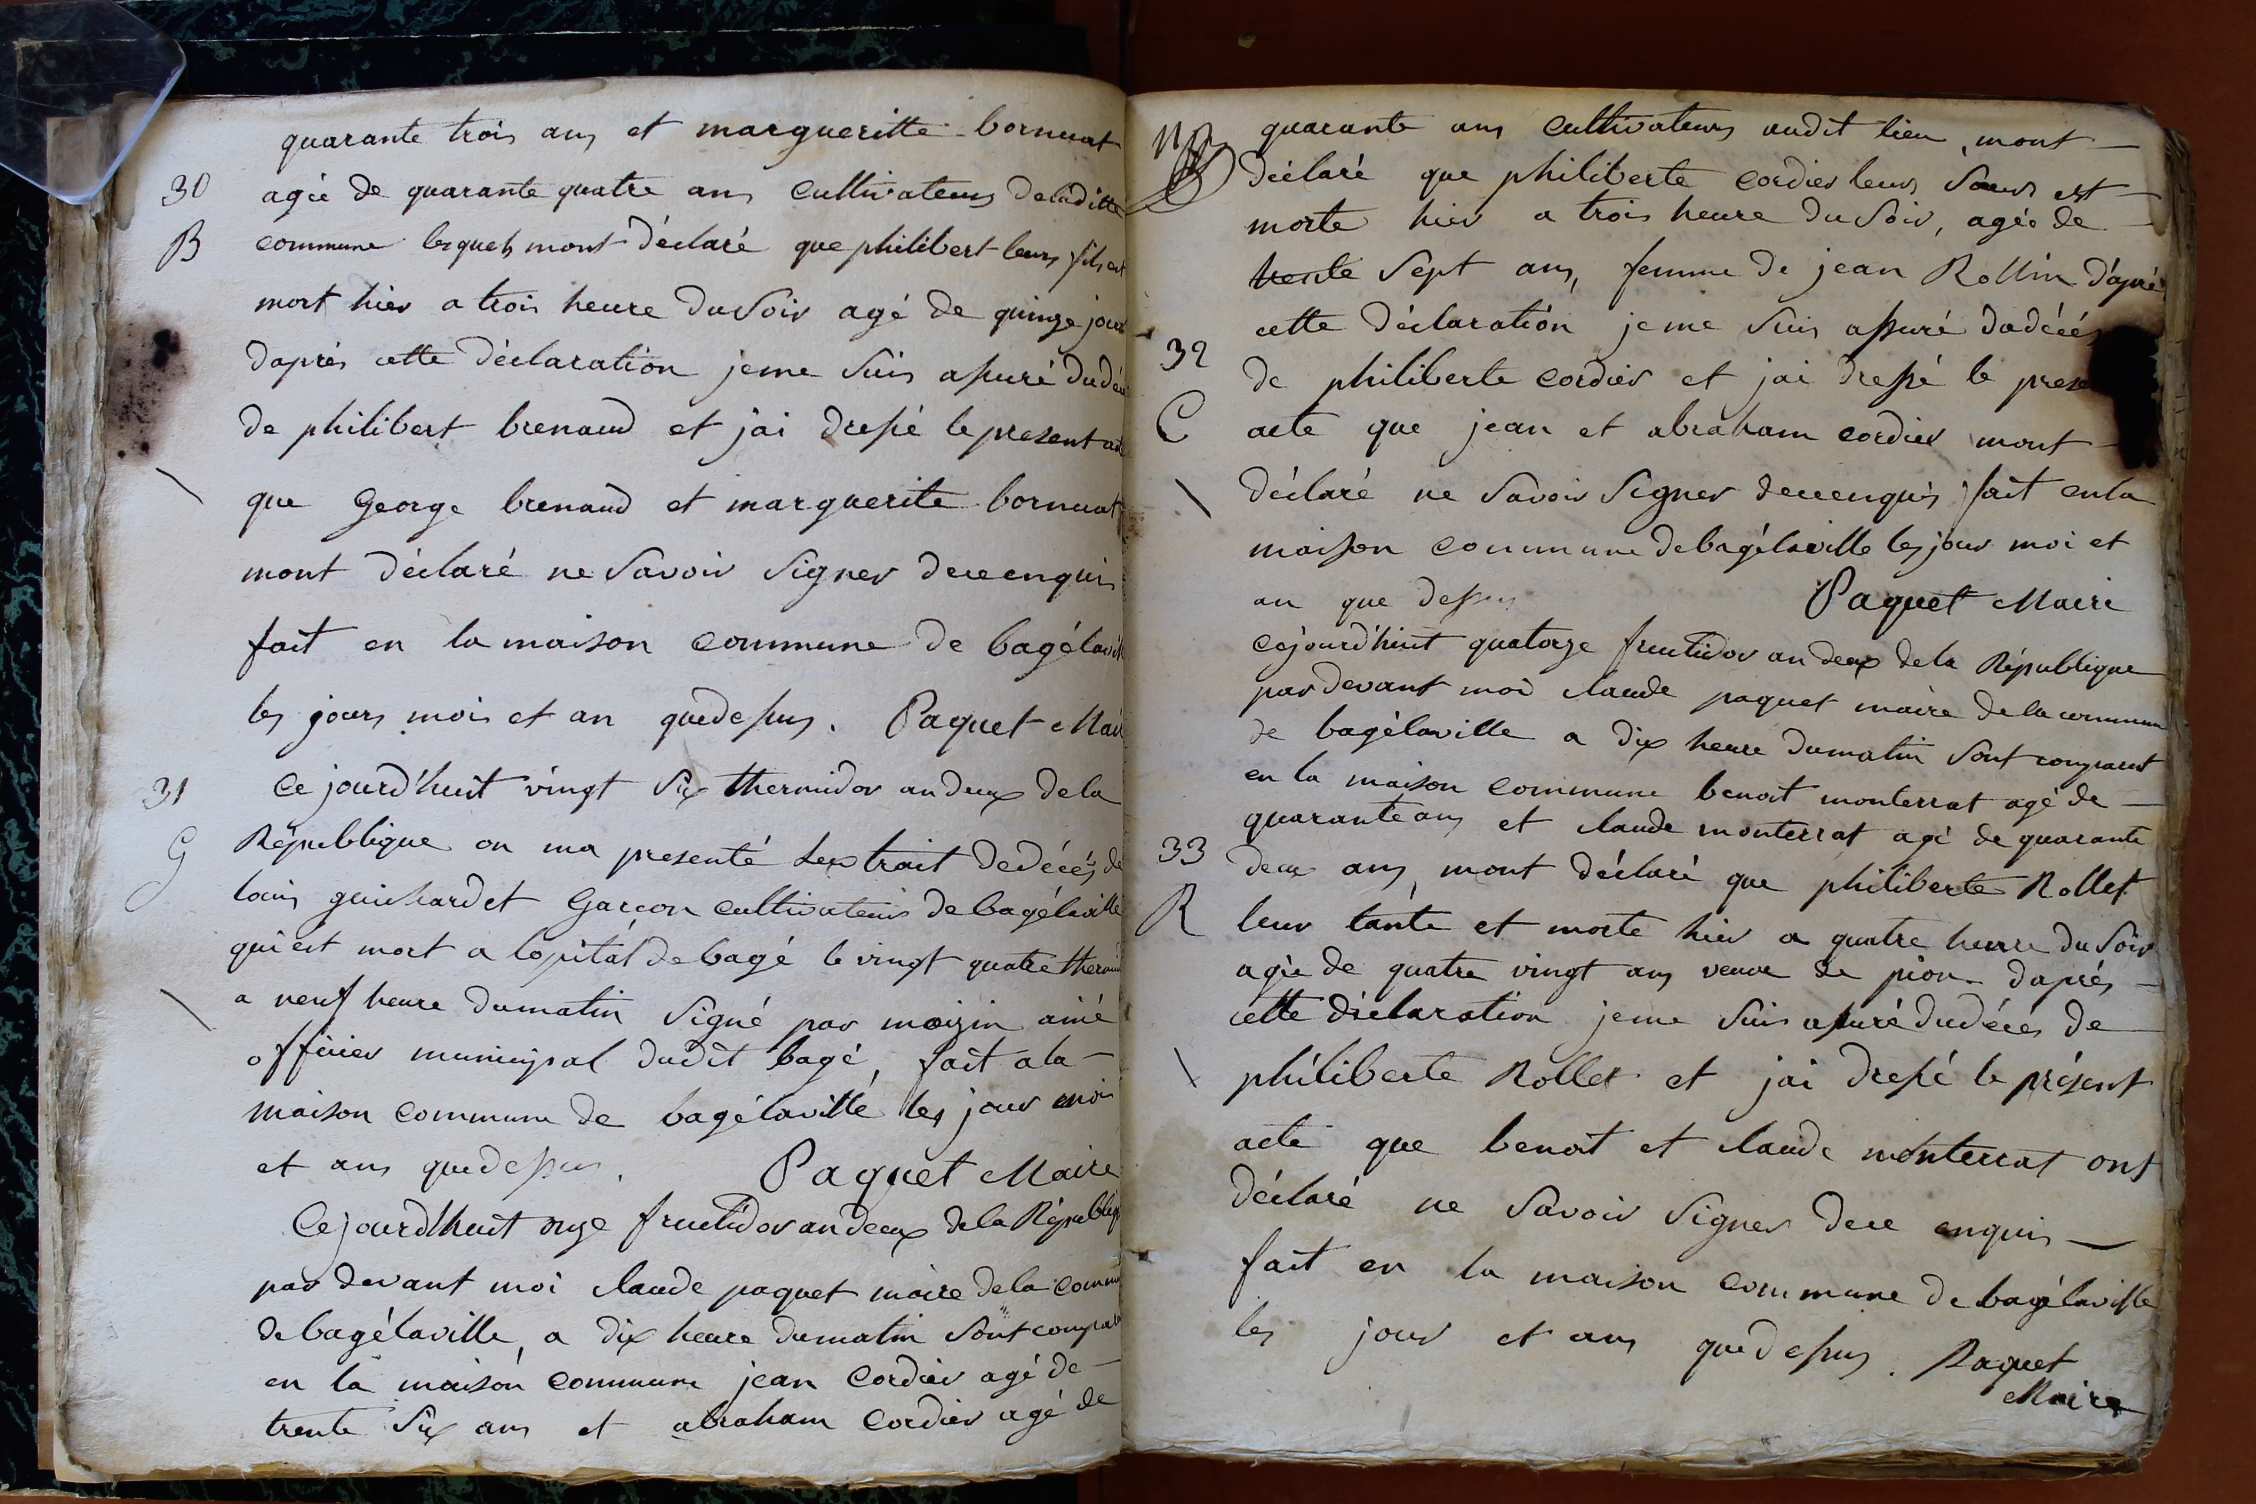 quarante trois ans et margueritte bornuat
30 agée de quarante quatre ans cultivateurs deladitte
B commune lesquels mont déclaré que philibert leurs fils est
mort hier a trois heure du Soir agé de quinze jours
daprés cette déclaration jeme Suis assuré dudéc
de philibert brenaud et jai dressé le present ac
que George brenaud et marguerite bornuat
mont déclaré ne Savoir Signer dece enquis
fait en la maison commune de bagélavill
les jours mois et an quedessus. Paquet Mair
31 Ce jourd'huit vingt Six thermidor an deux de la
G République on ma presenté Lextrait dedécés de
louis guichardet Garçon cultivateur de bagélaville
qui est mort a lopital de bagé le vingt quatre thermi
a neuf heure dumatin Signé par moizin ainé
officier municipal dudit bagé, fait a la
maison commune de bagélaville les jour mois
et ans quedessus. Paquet Maire
Cejourd'huit onze fructidor an deux dela Républiq
par devant moi claude paquet maire dela commu
de bagélaville, a dix heure dumatin Sont compar
en la maison commune jean Cordier agé de
trente Six ans et abraham Cordier agé de
quarante ans cultivateurs audit lieu mont
déclaré que philiberte cordier leurs Soeur est
morte hier a trois heure du Soir, agée de
trente Sept ans, femme de jean Rollin d'aprés
cette déclaration jeme Suis assuré dudécés
32 de philiberte cordier et jai dressé le prese
C acte que jean et abraham cordier mont
déclaré ne Savoir Signer dece enquis fait en la
maison commune de bagélaville les jour moi et
an que dessus Paquet Maire
Cejourd'huit quatorze fructidor an deux de la République
par devant moi claude paquet maire de la commun
de bagélaville a dix heure dumatin Sont comparut
en la maison commune benoit monterrat agé de
quarante ans et claude monterrat agé de quarante
33 deux ans, mont déclaré que philiberte Rollet
R leur tante et morte hier a quatre heure du Soir
agée de quatre vingt ans veuve de pion daprés
cette déclaration jeme Suis assuré dudécés de
philiberte Rollet et jai dressé le présent
acte que benoit et claude monterrat ont
déclaré ne Savoir Signer dece enquis
fait en la maison commune de bagélaville
les jour et ans quedessus. Paquet
Maire